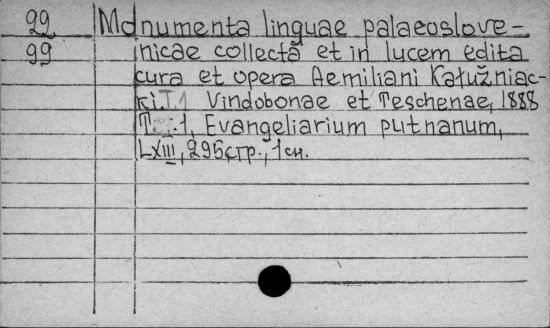 22 Monumenta linguae palaeoslove-
99 nicae collecta et in lucem edita
cura et opera Aemiliani Kałužniac-
ki. T.1 Vindobonae et Teschenae, 1888
T. .1, Evangeliarium putnanum,
LXIII, 295стр., 1сн.